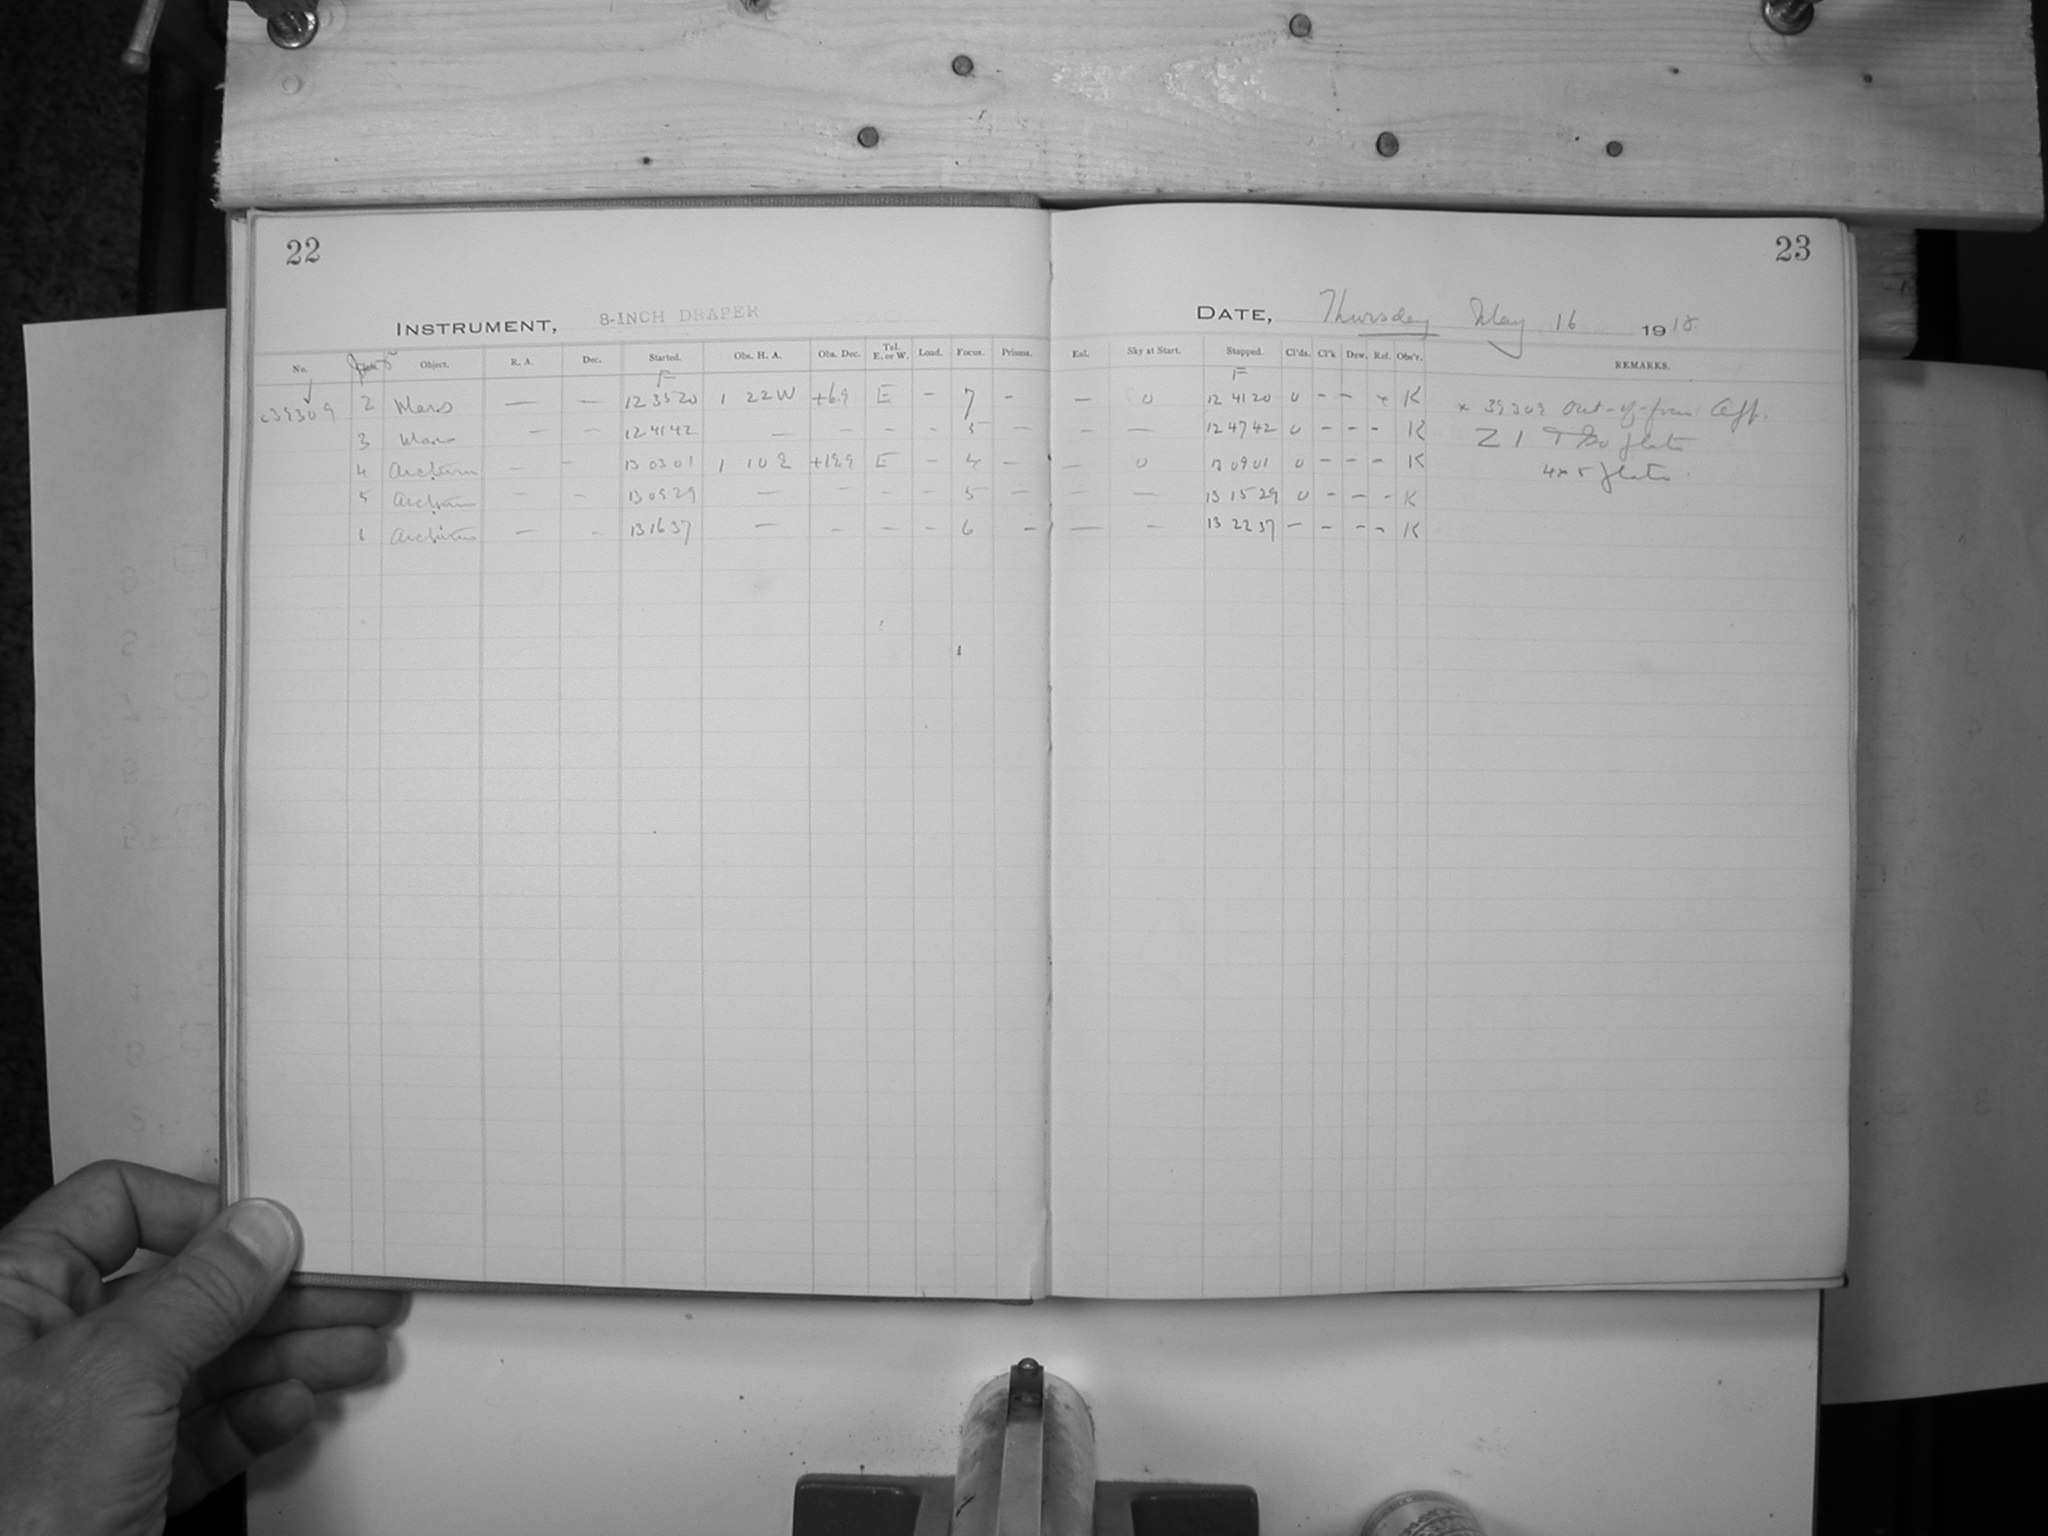 22
23
INSTRUMENT, 8-INCH DRAPER
DATE, Thursday May 16 1918
No. Object. R. A. Dec. Started. Obs. H. A. Obs. Dec. Tel. E. or W. Load. Focus. Prisms. Exl. Sky at Start. Stopped. Cl'ds. Cl'k Dew. Ref. Obs'r. REMARKS.
F F
c39309 2 Mars — — 12 35 20 1 22 W +6.9 E - 7 - — 0 12 41 20 0 - - × K × 39309 out-of-focus
3 Mars — — 12 41 42 — — — — 5 — — — 12 47 42 0 - - - K
4 Arcturus — - 13 03 01 1 10 E +19.9 E - 4 — — 0 13 09 01 0 - - - K 4 × 5 plate
5 Arcturus — — 13 09 29 — — — — 5 — — — 13 15 29 0 - - - K
1 Arcturus — - 13 16 37 — - - - 6 - — - 13 22 37 - - - - K